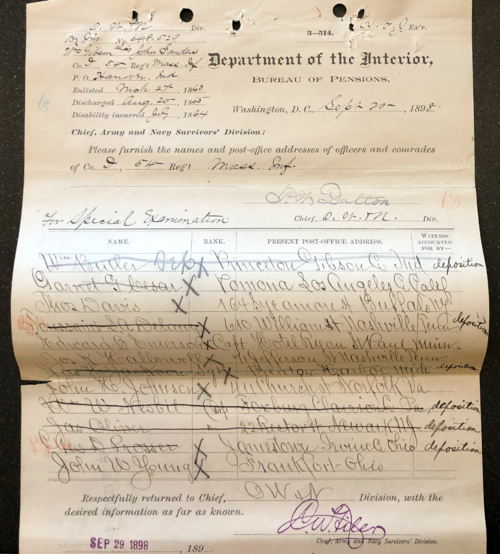 Div.
3—514.
Ex'r.
No. 698.520
Wm Gibson alias John Sanders
Co. I, 54 Reg't Mass Inf
Department of the Interior,
P. O. Hanover, Ind
BUREAU OF PENSIONS,
Enlisted Mch 27th, 186
Discharged Aug. 20, 1865
Washington, D. C., Sept 20, 1898.
Disability incurred July, 1864
Chief, Army and Navy Survivors' Division:
Please furnish the names and post-office addresses of officers and comrades
of Co. I, 54 Reg't Mass. Inf.
Dalton
For Special Examination
Chief, Div.
NAME. RANK. PRESENT POST-OFFICE ADDRESS. WITNESS ACCOUNTED FOR BY—
Wm Butler Princeton Gibson C. Ind deposition
Garret G. Pomona Los Angeles C. Calif
Thos Davis 164 Sycamore St Buffalo NY
610 William St Nashville Tenn deposition
Edward B. Emerson Capt Hotel Ryan St Paul Minn.
Jefferson St Nashville Tenn
Benton Harbor Mich deposition
John H. Johnson Church St Norfolk Va
Wm W. Nesbit Corp Clarion C. Pa deposition
Jas Oliver " 22 Rector St Newark NJ deposition
Geo S. Prosser Jamestown C. Ohio deposition
John W. Young Frankfort Ohio
Respectfully returned to Chief, O W & N Division, with the
desired information as far as known.
Chief, Army and Navy Survivors' Division.
SEP 29 1898 , 189